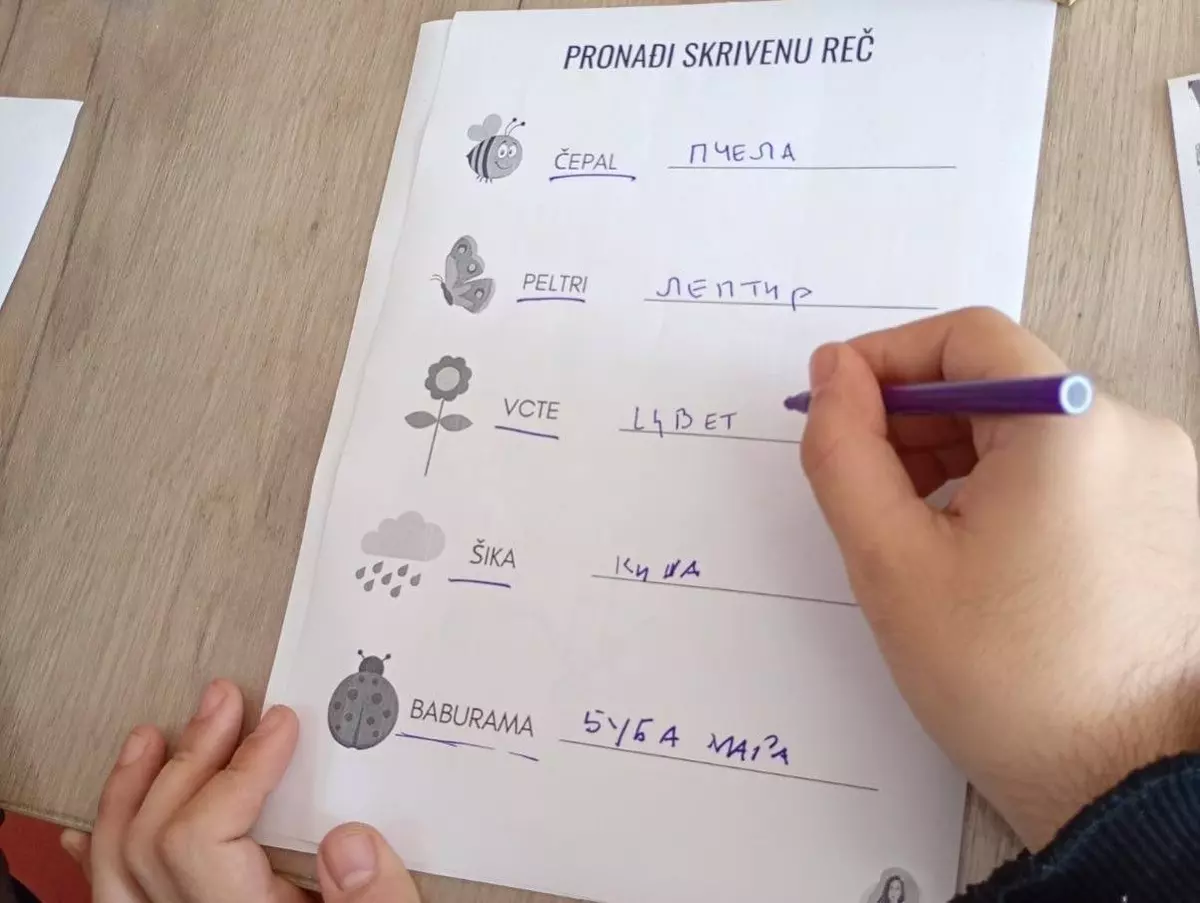 PRONAĐI SKRIVENU REČ
ČEPAL ПЧЕЛА
PELTRI ЛЕПТИР
VCTE ЦВЕТ
ŠIKA КИША
BABURAMA БУБА МАРА